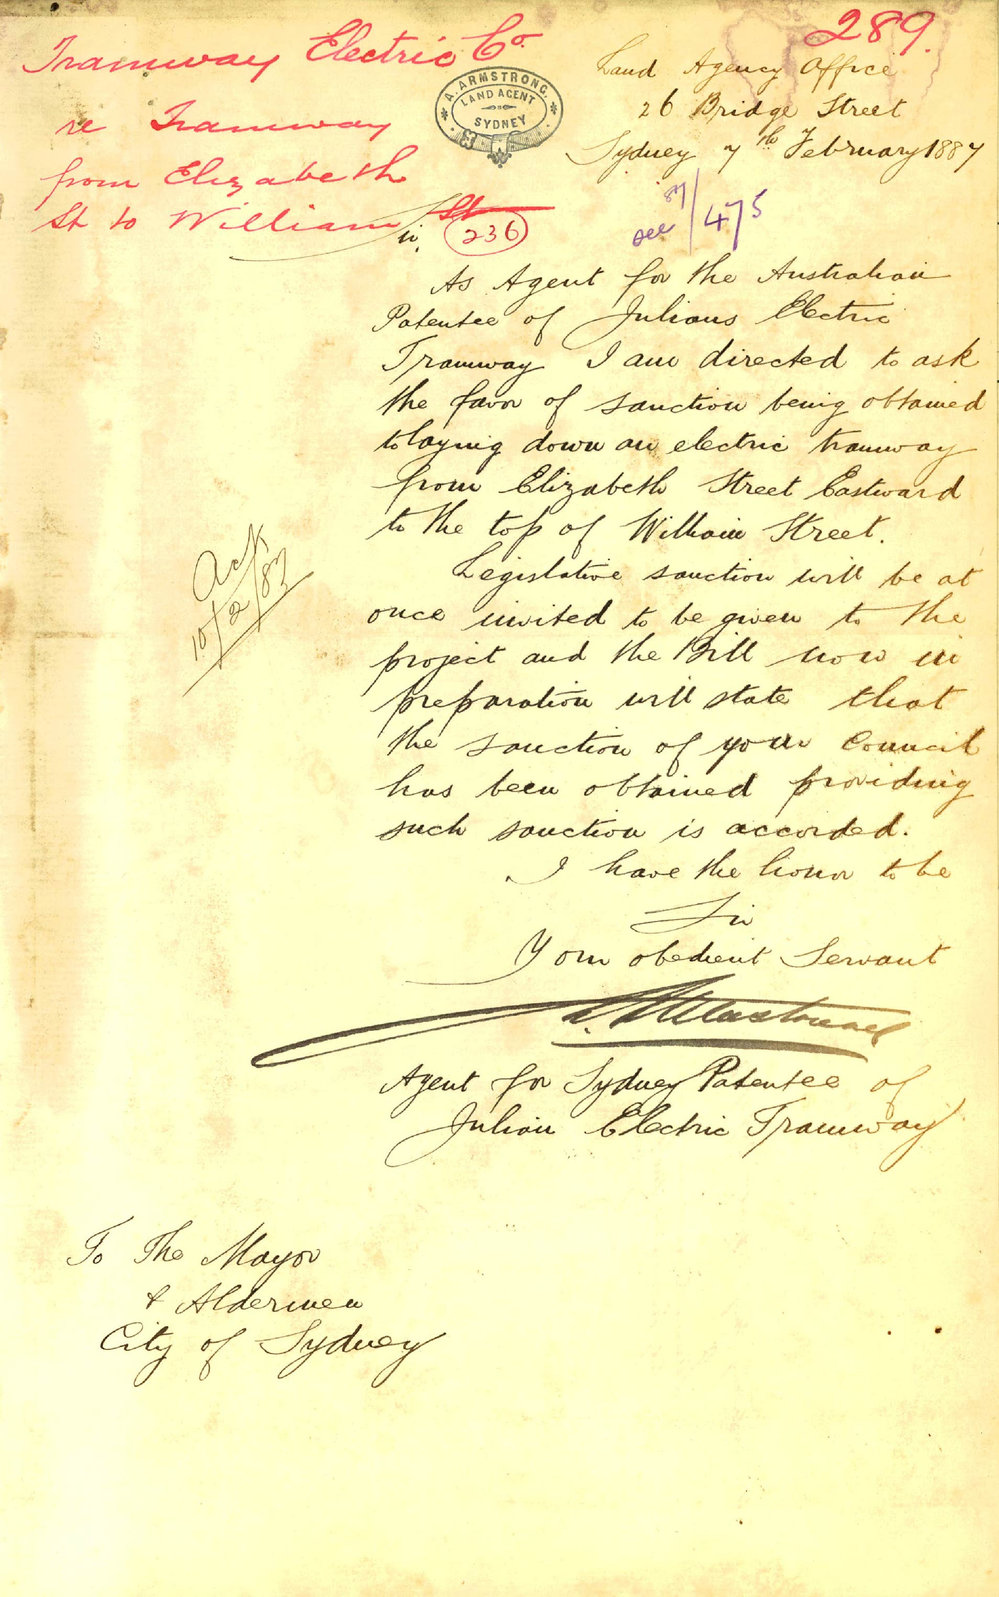 289.
Tramway Electric Co
re Tramway
from Elizabeth
St to William St
236
A. ARMSTRONG,
LAND AGENT
SYDNEY
Land Agency Office
26 Bridge Street
Sydney 7th February 1887
see 87/475
Sir,
As Agent for the Australian
Patentee of Julians Electric
Tramway I am directed to ask
the favor of sanction being obtained
to laying down an electric tramway
from Elizabeth Street Eastward
to the top of William Street.
Legislative sanction will be at
once invited to be given to the
project and the Bill now in
preparation will state that
the sanction of your Council
has been obtained providing
such sanction is accorded.
I have the honor to be
Sir
Your obedient Servant
Armstrong
Agent for Sydney Patentee of
Julian Electric Tramway
Ack
10/2/87
To The Mayor
& Aldermen
City of Sydney